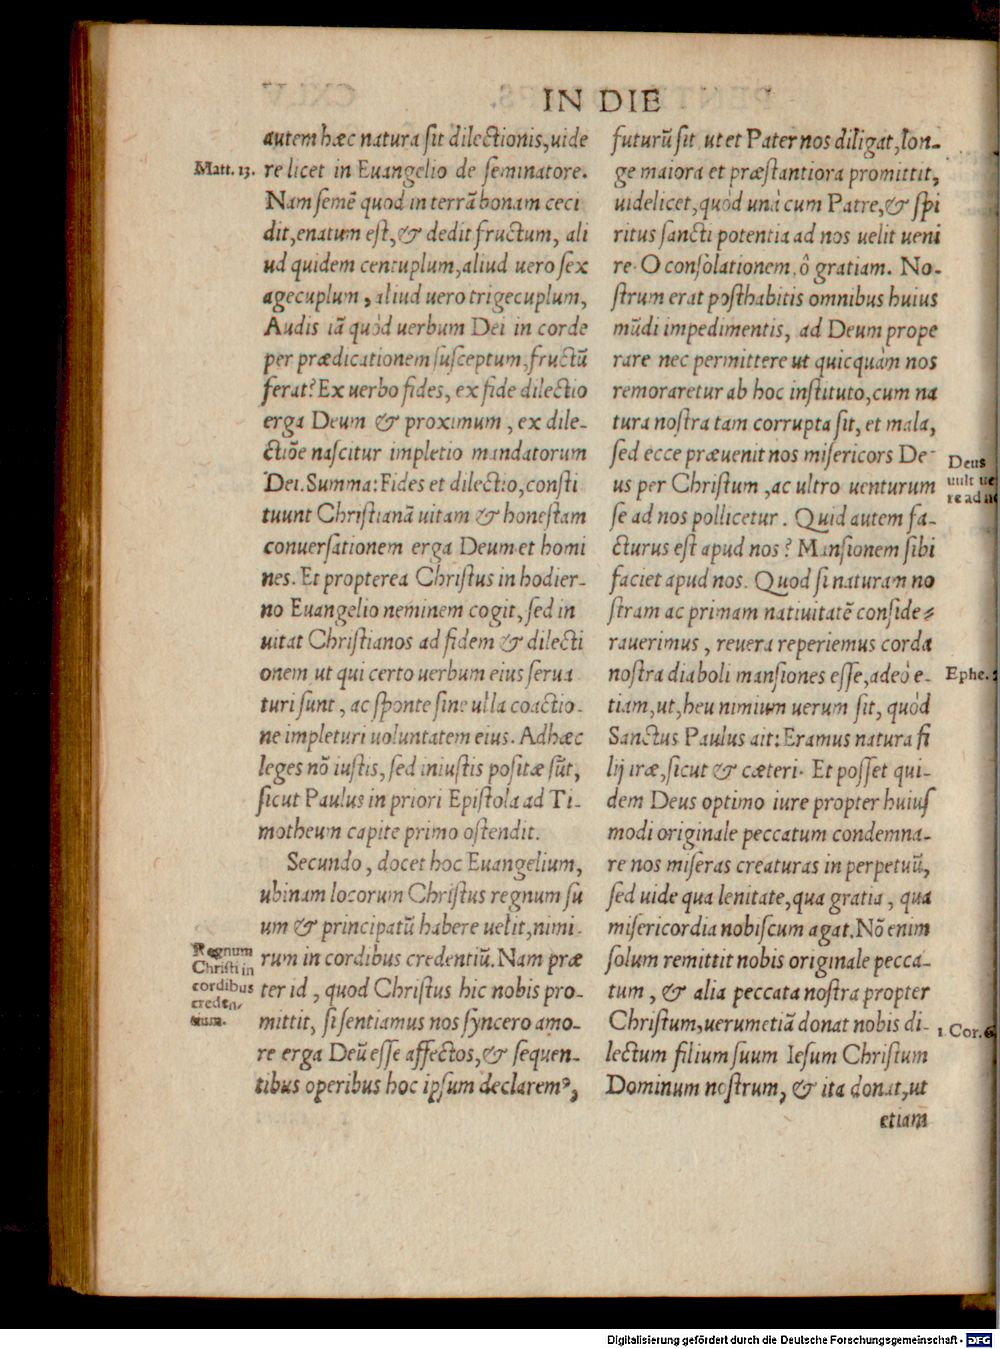 IN DIE
autem hæc natura sit dilectionis, uide
Matt. 13.
re licet in Euangelio de seminatore.
Nam semẽ quod in terrã bonam ceci
dit, enatum est, & dedit fructum, ali
ud quidem centuplum, aliud uero sex
agecuplum, aliud uero trigecuplum,
Audis iã quòd uerbum Dei in corde
per prædicationem susceptum, fructũ
ferat? Ex uerbo fides, ex fide dilectio
erga Deum & proximum, ex dile-
ctiõe nascitur impletio mandatorum
Dei. Summa: Fides et dilectio, consti
tuunt Christianã uitam & honestam
conuersationem erga Deum et homi
nes. Et propterea Christus in hodier-
no Euangelio neminem cogit, sed in
uitat Christianos ad fidem & dilecti
onem ut qui certo uerbum eius serua
turi sunt, ac sponte sine ulla coactio-
ne impleturi uoluntatem eius. Adhæc
leges nõ iustis, sed iniustis positæ sũt,
sicut Paulus in priori Epistola ad Ti-
motheum capite primo ostendit.
Secundo, docet hoc Euangelium,
ubinam locorum Christus regnum su
um & principatũ habere uelit, nimi-
Regnum
Christi in
cordibus
creden-
tium.
rum in cordibus credentiũ. Nam præ
ter id, quod Christus hic nobis pro-
mittit, si sentiamus nos syncero amo-
re erga Deũ esse affectos, & sequen-
tibus operibus hoc ipsum declaremꝰ,
futurũ sit ut et Pater nos diligat, lon-
ge maiora et præstantiora promittit,
uidelicet, quòd unà cum Patre, & spi
ritus sancti potentia ad nos uelit ueni
re. O consolationem, ô gratiam. No-
strum erat posthabitis omnibus huius
mũdi impedimentis, ad Deum prope
rare nec permittere ut quicquàm nos
remoraretur ab hoc instituto, cum na
tura nostra tam corrupta sit, et mala,
sed ecce præuenit nos misericors De-
Deus
uult ue
re ad
us per Christum, ac ultro uenturum
se ad nos pollicetur. Quid autem fa-
cturus est apud nos? Mansionem sibi
faciet apud nos. Quod si naturam no
stram ac primam natiuitatẽ conside-
rauerimus, reuera reperiemus corda
nostra diaboli mansiones esse, adeò e-
Ephe.
tiam, ut, heu nimium uerum sit, quòd
Sanctus Paulus ait: Eramus natura fi
lij iræ, sicut & cæteri. Et posset qui-
dem Deus optimo iure propter huius
modi originale peccatum condemna-
re nos miseras creaturas in perpetuũ,
sed uide qua lenitate, qua gratia, qua
misericordia nobiscum agat. Nõ enim
solum remittit nobis originale pecca-
tum, & alia peccata nostra propter
Christum, uerumetiã donat nobis di-
1. Cor.
lectum filium suum Iesum Christum
Dominum nostrum, & ita donat, ut
etiam
Digitalisierung gefördert durch die Deutsche Forschungsgemeinschaft - DFG